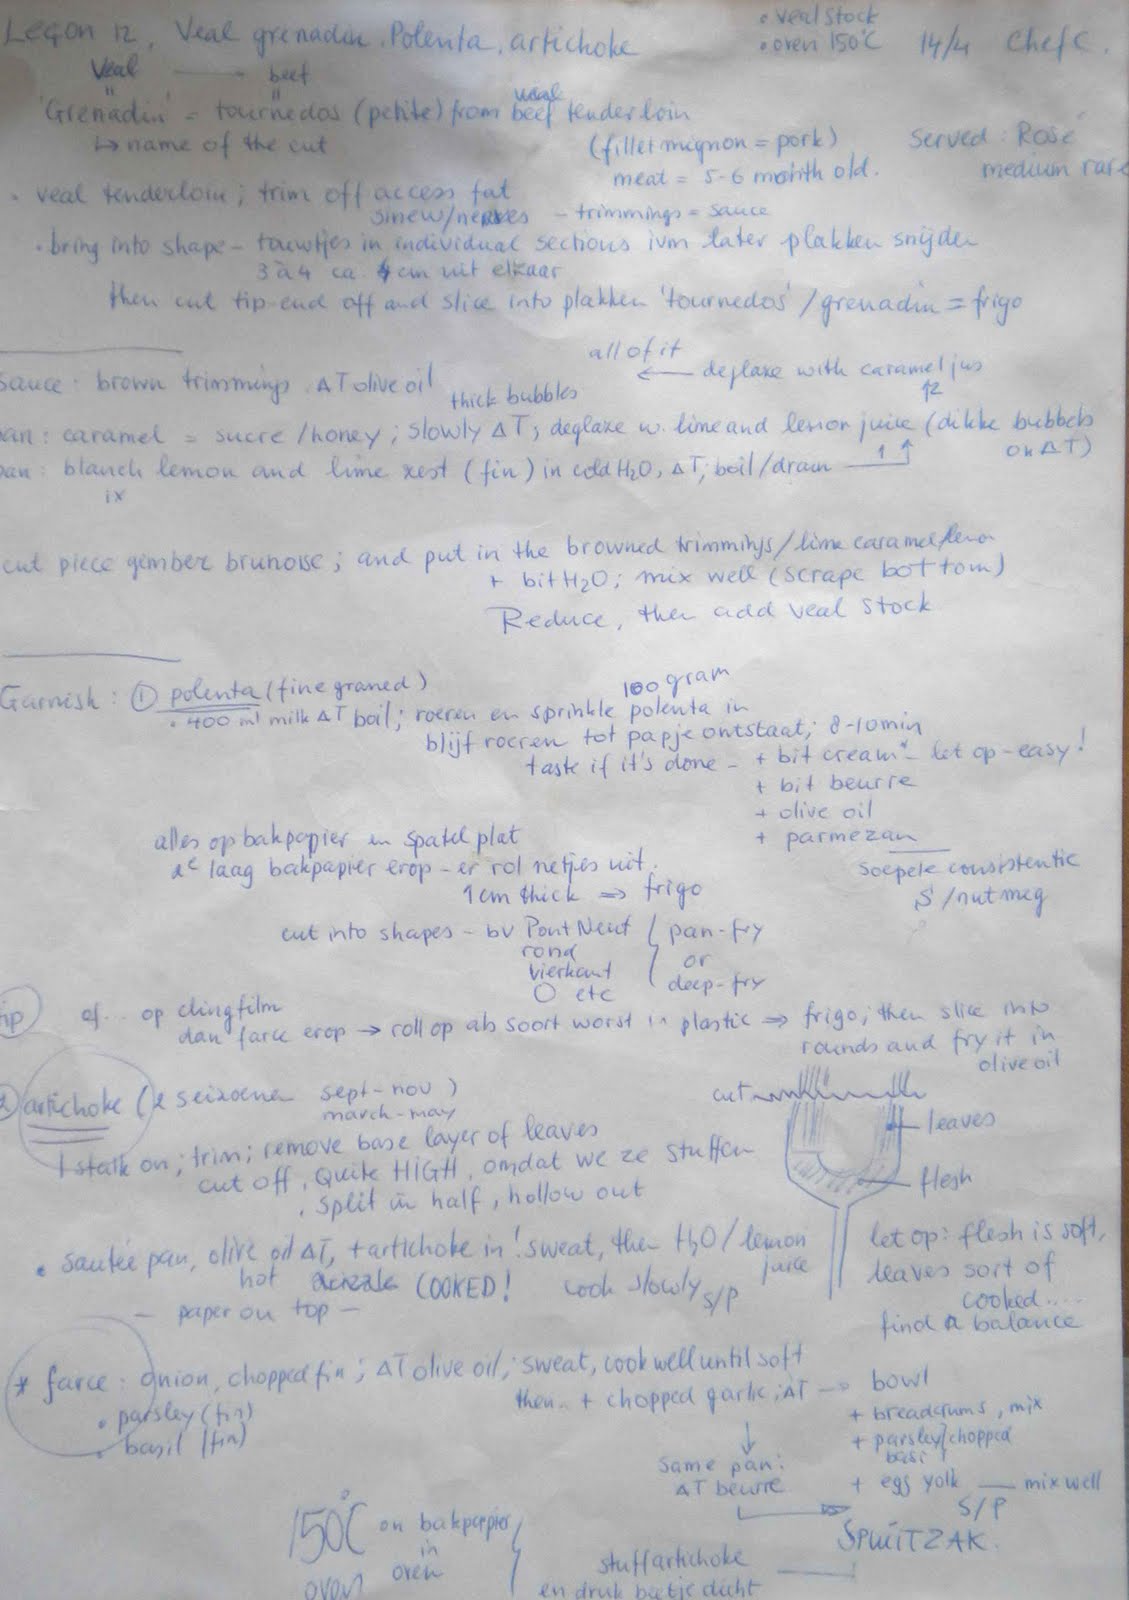 Leçon 12, Veal grenadin, Polenta, artichoke
• veal stock
• oven 150°C
14/4 Chef C.
Veal — beef
'Grenadin' = tournedos (petite) from beef tenderloin
veal
↳ name of the cut
(fillet mignon = pork)
meat = 5-6 month old.
Served: Rosé
medium rare
• veal tenderloin; trim off access fat
sinew/nerves - trimmings = sauce
• bring into shape - touwtjes in individual sections ivm later plakken snijden
3 à 4 ca. 4 cm uit elkaar
then cut tip-end off and slice into plakken 'tournedos' / grenadin = frigo
Sauce: brown trimmings. ΔT olive oil
all of it
← deglaze with caramel jus
↑2
thick bubbles
pan: caramel = sucre/honey; slowly ΔT; deglaze w. lime and lemon juice (dikke bubbels
on ΔT)
pan: blanch lemon and lime zest (fin) in cold H2O, ΔT; boil/drain
1x
cut piece gember brunoise; and put in the browned trimmings/lime caramel/
+ bit H2O; mix well (scrape bottom)
Reduce, then add veal stock
Garnish: ① polenta (fine grained)
100 gram
• 400 ml milk ΔT boil; roeren en sprinkle polenta in
blijf roeren tot papje ontstaat; 8-10 min
taste if it's done - + bit cream* - let op - easy!
+ bit beurre
+ olive oil
+ parmezan
soepele consistentie
S/nutmeg
alles op bakpapier en spatel plat
2e laag bakpapier erop - er rol netjes uit.
1 cm thick ⇒ frigo
cut into shapes - bv Pont Neuf
rond
vierkant
O etc
pan-fry
or
deep-fry
tip
of... op clingfilm
dan farce erop → roll op als soort worst in plastic ⇒ frigo; then slice into
rounds and fry it in
olive oil
② artichoke (2 seizoenen sept-nov)
march-may
cut
leaves
flesh
stalk on; trim; remove base layer of leaves
cut off, Quite HIGH, omdat we ze stuffen
• split in half, hollow out
• sautée pan, olive oil ΔT, + artichoke in! sweat, then H2O / lemon
juice
hot COOKED! cook slowly S/P
- paper on top -
let op: flesh is soft,
leaves sort of
cooked....
find a balance
* farce: onion, chopped fin; ΔT olive oil; sweat, cook well until soft
then.. + chopped garlic; ΔT → bowl
• parsley (fin)
• basil (fin)
+ breadcrums, mix
+ parsley/chopped
basil
+ egg yolk — mix well
S/P
same pan:
ΔT beurre
SPUITZAK.
150°C on bakpapier
in
oven
oven
stuff artichoke
en druk beetje dicht